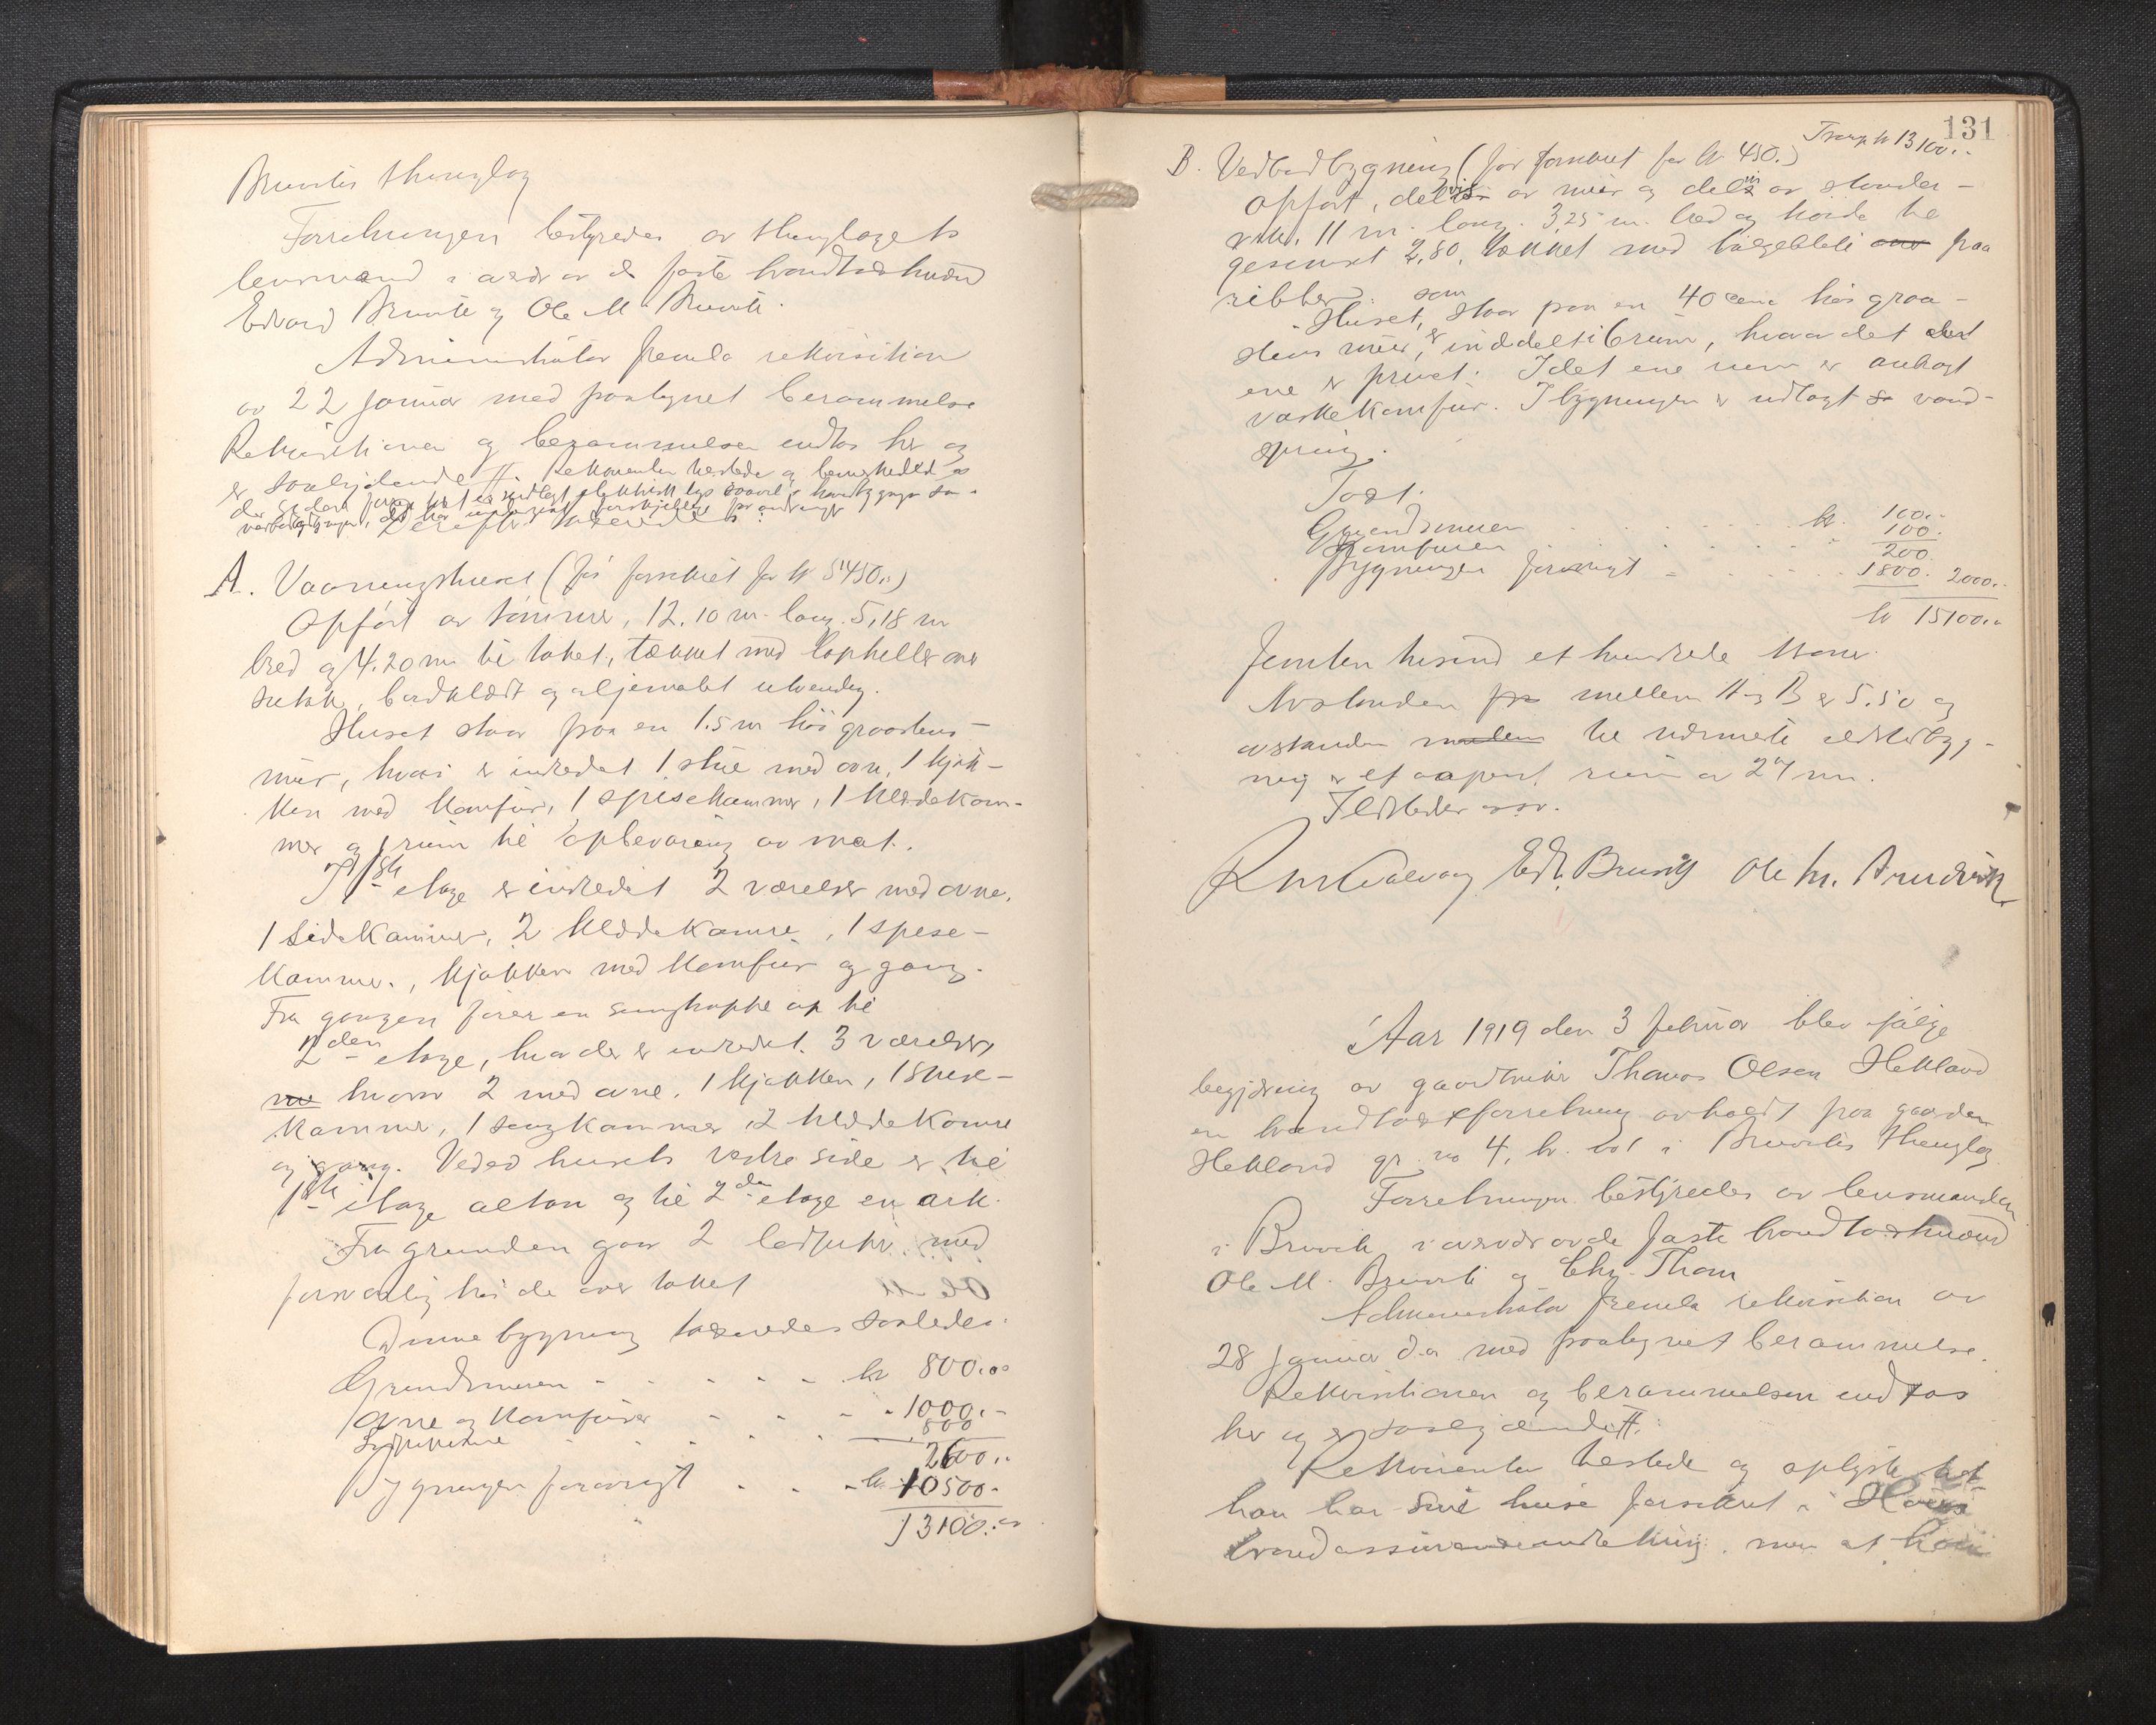 Bruviks thinglag
Forretningen bestyredes av thinglagets
lensmand i overvær av de faste brandtakstmænd
Edvard Bruvik og Ole M. Bruvik.
Administrator fremla rekvisition
av 22 januar med paategnet berammelse
Rekvisitionen og berammelsen indtas her og
er saalydende #. Rekvirenten tilstede og bemerkede at
der siden forrige takst er indlagt elektrisk lys saavel i
Derefter takseredes:
A. Vaaningshuset (før forsikret for kr 5450.-)
Opført av tømmer, 12.10 m. lang. 5,18 m
bred og 4.20 m til taket, tækket med lapheller over
sutak, bordklædt og oljemalet utvendig.
Huset staar paa en 1.5 m høi graastens-
mur, hvori er indredet 1 stue med ovn, 1 kjøk-
ken med komfur, 1 spisekammer, 1 klædekam-
mer og 1 rum til opbevaring av mat.
I 1ste etage er indredet 2 værelser med ovne,
1 sidekammer, 2 klædekamre, 1 spise-
kammer, kjøkken med komfur og gang.
Fra gangen fører en svingtrappe op til
2den etage, hvor der er indredet 3 værelser,
hvorav 2 med ovne. 1 kjøkken, 1 spise-
kammer, 1 sengkammer, 2 klædekamre
og gang. Ved husets vestre side er til
1ste etage altan og til 2den etage en ark.
Fra grunden gaar 2 luftpiper med
forsvarlig høide over taket
Denne bygning takseredes saaledes:
Grundmuren - - - - - kr 800.00
Ovne og komfurer - - - - 1000.-
- - - - - 800
2600.-
Bygningen forøvrigt - - - kr. 10500.-
13100.-
131
Transp. kr 13100.-
B. Vedbodbygning (før forsikret for kr 450.-)
Opført, delvis av mur og delvis av stender-
verk. 11 m. lang. 3,25 m. bred og høide til
gesimset 2,80, tækket med bølgeblik paa
ribber.
Huset, som staar paa en 40 cm høi graa-
stens mur, er inddelt i 6 rum, hvorav det
ene er privet. I det ene rum er anbragt
vaskekomfur. I bygningen er indlagt vand-
spring.
Takst:
Grundmuren - - - - - kr. 100.-
Komfuren - - - - - 100.
200.
Bygningen forøvrigt - - - - 1800. 2000.-
kr 15100.-
Femten tusind et hundrede kroner.
Avstanden mellem A og B er 5.50 og
avstanden til nærmeste ildstedbyg-
ning er et aapent rum av 27 m.
Ildsteder osv.
Edv. Bruvik Ole M. Bruvik
Aar 1919 den 3 februar blev ifølge
begjæring av gaardbruker Thomas Olsen Hekland
en brandtakstforretning avholdt paa gaarden
Hekland gr. no 4, br. no 1 i Bruviks thinglag
Forretningen bestyredes av lensmanden
i Bruvik i overvær av de faste brandtakstmænd
Ole M. Bruvik og Chr. Thom
Administrator fremla rekvisition av
28 januar d.a. med paategnet berammelse.
Rekvisitionen og berammelsen indtas
her og er saalydende #:
Rekvirenten tilstede og oplyste at
han har sine huse forsikret i
brandassuranceindretning, men at han